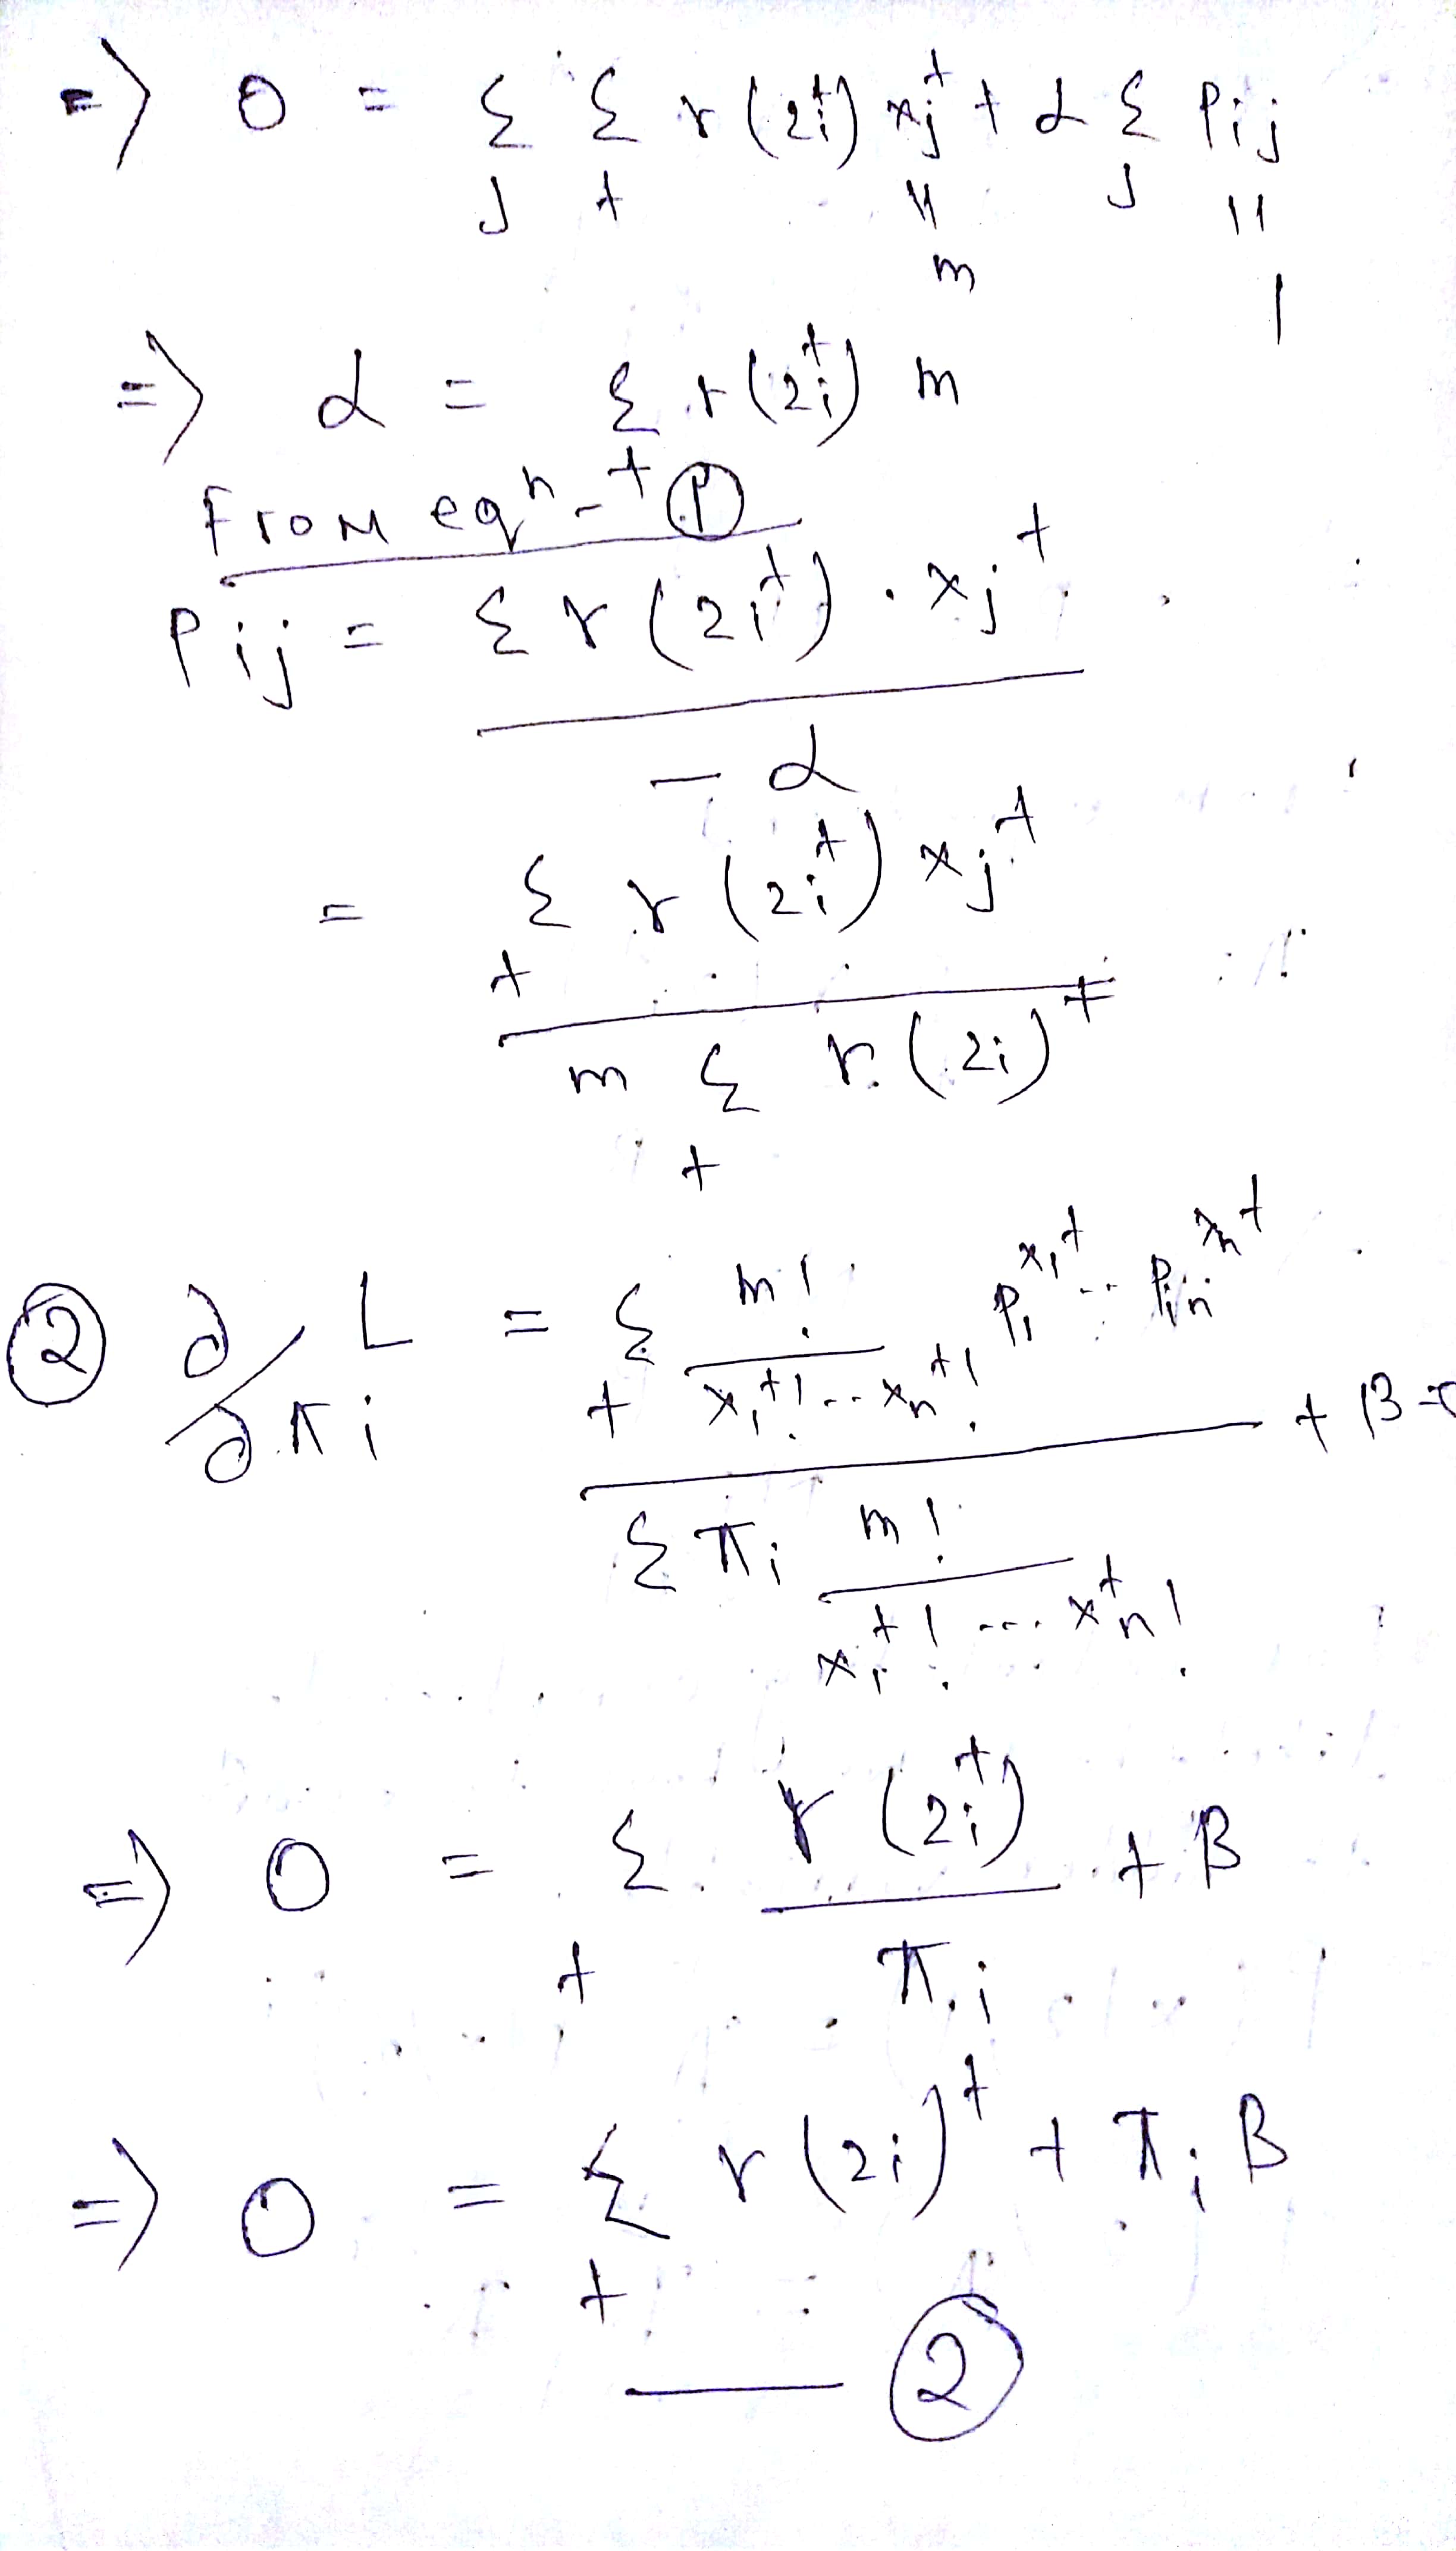 => 0 = Σ_j Σ_t r(z_i^t) x_j^t + α Σ_j P_ij
॥ ॥
m 1
=> α = Σ_t r(z_i^t) m
From eqⁿ - ①
P_ij = Σ r(z_i^t) . x_j^t
- α
= Σ_t r(z_i^t) x_j^t
m Σ_t r(z_i)^t
② ∂/∂π_i L = Σ_t m! / (x_1^t! .. x_n^t!) P_i^{x_1^t} .. P_in^{x_n^t} + β
Σ π_i m! / (x_1^t! ... x_n^t!)
=> 0 = Σ_t r(z_i^t) / π_i + β
=> 0 = Σ_t r(z_i)^t + π_i β
— ②